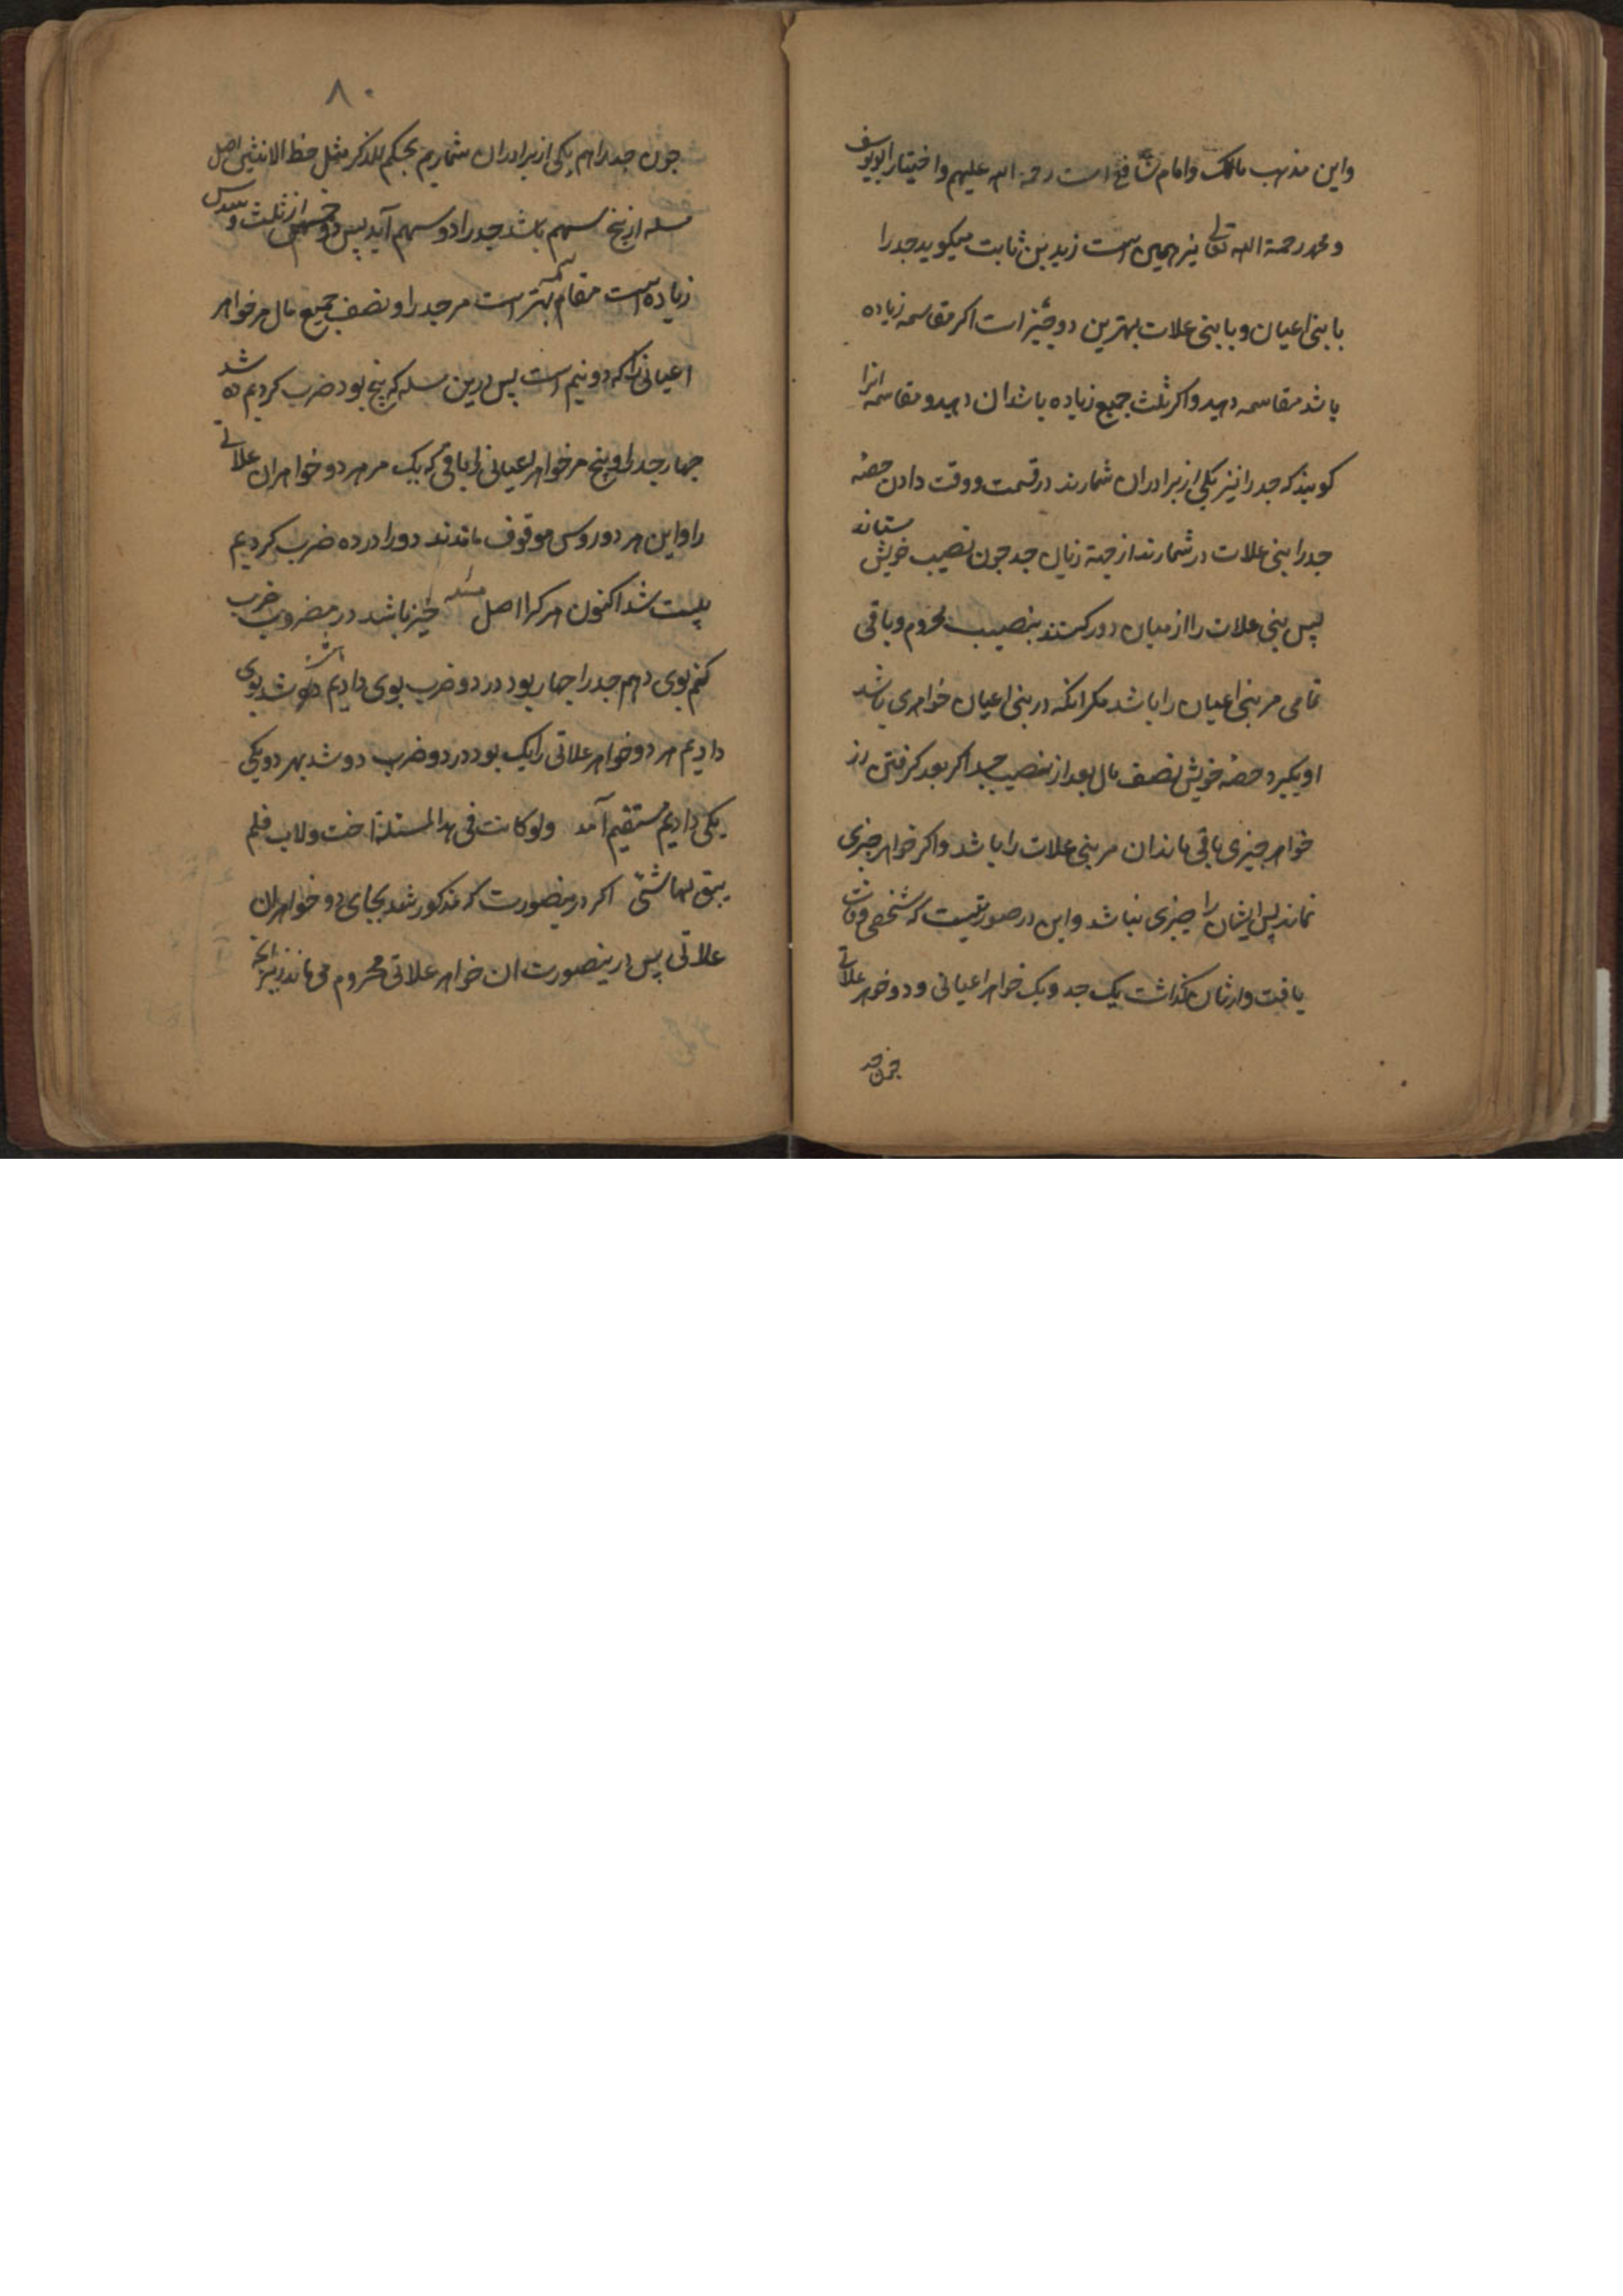 واین مذهب مالک وامام شافع است رحمة الله علیهم واختیار ابویوسف
ومحمد رحمة الله تعالی نیز همین است زید بن ثابت میکوید جد را
با بنی اعیان و با بنی علات بهترین دو چیز است اکر مقاسمه زیاده
باشد مقاسمه دهید واکر ثلث جمیع زیاده باشد ان دهید و مقاسمه انرا
کویند که جد را نیز یکی از برادران شمارند در قسمت ووقت دادن حصهٔ
جد را بنی علات در شمارند از جهة زیان جد جون نصیب خویش ستاند
پس بنی علات را از میان دور کنند بنصیب محروم وباقی
تمامی مر بنی اعیان را باشد مکر انکه در بنی اعیان خواهری باشد
او بکیرد حصهٔ خویش نصف مال بعد از نصیب جد اکر بعد کرفتن از
خواهر جیزی باقی ماند ان مر بنی علات را باشد واکر خواهر جیزی
نماند پس ایشان را جیزی نباشد واین در صورتیست که شخصی وفات
یافت وارثان بکذاشت یک جد ویک خواهر اعیانی ودو خواهر علاتی
جون جد
۸۰
جون جد را هم یکی از برادران شماریم بحکم للذکر مثل حظ الانثیین اصل
مسله از پنج سهم باشد جد را دو سهم آید پس دو خمس از ثلث و سدس
زیاده است مقاسمه بهتر است مر جد را ونصف جمیع مال مر خواهر
اعیانی را که دو نیم است پس درین مسله که پنج بود ضرب کردیم ده شد
جهار جد را وپنج مر خواهر اعیانی را باقی که یک مر هر دو خواهران علاتی
را واین هر دو روس موقوف ماندند دو را در ده ضرب کردیم
بیست شد اکنون هر کرا اصل مسله جیز باشد در مضروب ضرب
کنم بوی دهم جد را جهار بود در دو ضرب بوی دادیم هشت شد بوی
دادیم هر دو خواهر علاتی را یک بود در دو ضرب دو شد بهر دو یکی
یکی دادیم مستقیم آمد ولو کانت فی هذا المسئلة اخت ولاب فلم
یبق لها شئ اکر درینصورت که مذکور شد بجای دو خواهران
علاتی پس درینصورت ان خواهر علاتی محروم می ماند